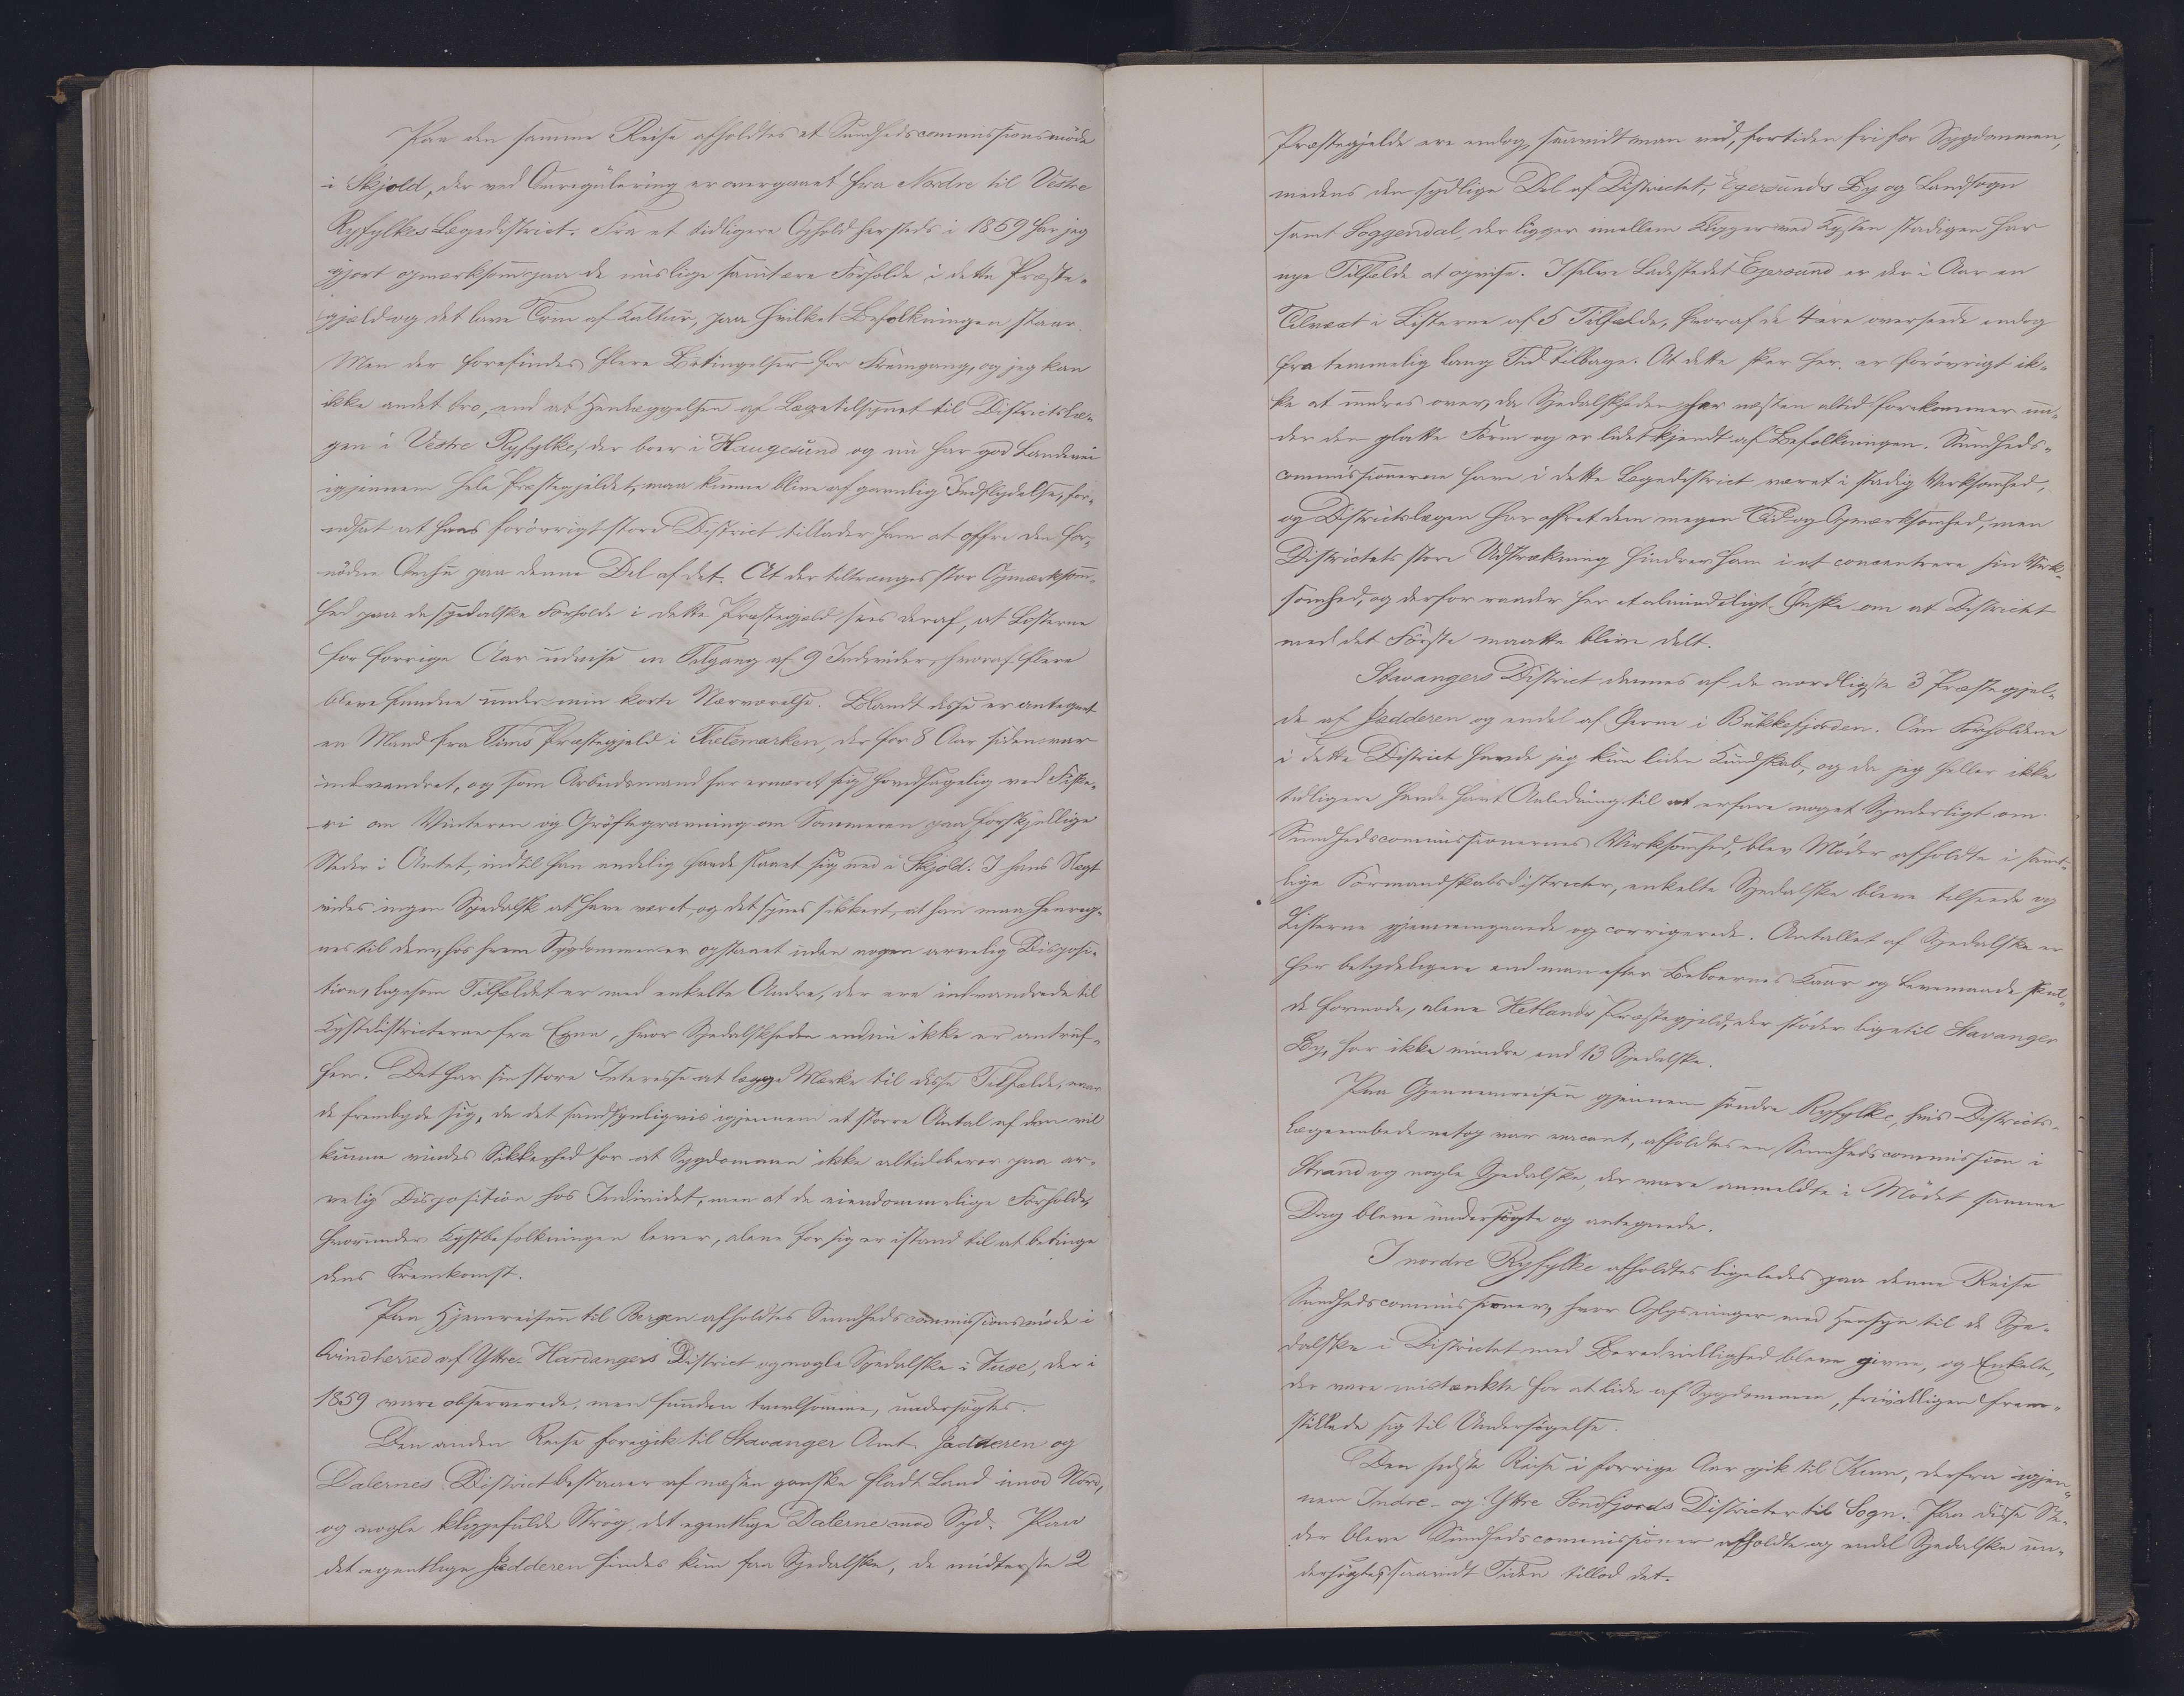 Paa den samme Reise afholdtes et Sundhedscommissionsmöde
i Skjold, der ved Omregulering er overgaaet fra Nordre til Vestre
Ryfylkes Lægedistrict. Fra et tidligere Ophold hersteds i 1859 har jeg
gjort opmærksom paa de uslige sanitære Forholde i dette Præste-
gjæld og det lave Trin af Kultur, paa hvilket Befolkningen staar.
Men der forefindes flere Betingelser for Fremgang, og jeg kan
ikke andet tro, end at Henlæggelsen af Lægetilsynet til Districtslæ-
gen i Vestre Ryfylke, der boer i Haugesund og nu har god Landevei
igjennem hele Præstegjeldet, maa kunne blive af gavnlig Indflydelse, for-
udsat at hans forövrigt store District tillader ham at offre den for-
nödne Omhu paa denne Del af det. At der tiltrænges stor Opmærksom-
hed paa de spedalske Forholde i dette Præstegjeld sees deraf, at Listerne
for forrige Aar udvise en Tilgang af 9 Individer, hvoraf flere
bleve fundne under min korte Nærværelse. Blandt disse er antegnet
en Mand fra Tins Præstegjeld i Thelemarken, der for 8 Aar siden var
indvandret, og som Arbeidsmand har ernæret sig hovedsagelig ved Fiske-
ri om Vinteren og Gröftegravning om Sommeren paa forskjellige
Steder i Amtet, indtil han endelig havde slaaet sig ned i Skjold. I hans Slægt
vides ingen Spedalsk at have været, og det synes sikkert, at han maa henreg-
nes til dem, hos hvem Sygdommen er opstaaet uden nogen arvelig Disposi-
tion, ligesom Tilfældet er med enkelte Andre, der ere indvandrede til
Kystdistricterne fra Egne, hvor Spedalskheden endnu ikke er antruf-
fen. Det har sin store Interesse at lægge Mærke til disse Tilfælde, naar
de frembyde sig, da det sandsynligvis igjennem et større Antal af dem vil
kunne vindes Sikkerhed for at Sygdommen ikke altid beror paa ar-
velig Disposition hos Individet, men at de eiendommelige Forholde,
hvorunder Kystbefolkningen lever, alene for sig er istand til at betinge
dens Fremkomst.
Paa Hjemreisen til Bergen afholdtes Sundhedscommissionsmöde i
Qvindherred af Yttre Hardangers District og nogle Spedalske i Fuse, der i
1859 vare observerede, men fundne tvivlsomme, undersögtes.
Den anden Reise foregik til Stavanger Amt. Jædderen og
Dalernes District bestaaer af næsten ganske fladt Land imod Nord,
og nogle klippefulde Strög, det egentlige Dalerne mod Syd. Paa
det egentlige Jædderen findes kun faa Spedalske, de midterste 2
Præstegjelde ere endog, saavidt man ved, fortiden fri for Sygdommen,
medens den sydlige Del af Districtet, Egersunds By og Landsogn
samt Soggendal, der ligger imellem Klipper ved Kysten stadigen har
nye Tilfælde at opvise. I selve Ladestedet Egersund er der i Aar en
Tilvæxt i Listerne af 5 Tilfælde, hvoraf de 4 ere overseede endog
fra temmelig lang Tid tilbage. At dette sker her, er forövrigt ik-
ke at undres over, da Spedalskheden her næsten altid forekommer un-
der den glatte Form og er lidet kjendt af Befolkningen. Sundheds-
commissionerne have i dette Lægedistrict været i stadig Virksomhed,
og Districtslægen har offret dem megen Tid og Opmærksomhed, men
Districtets store Udstrækning hindrer ham i at concentrere sin Virk-
somhed, og derfor raader her et almindeligt Önske om at Districtet
med det Förste maatte blive delt.
Stavangers District dannes af de nordligste 3 Præstegjel-
de af Jædderen og endel af Öerne i Bukkefjorden. Om Forholdene
i dette District havde jeg kun liden Kundskab, og da jeg heller ikke
tidligere havde havt Anledning til at erfare noget Synderligt om
Sundhedscommissionernes Virksomhed, blev Möder afholdte i samt-
lige Formandskabsdistricter, enkelte Spedalske bleve tilseede og
Listerne gjennemgaaede og corrigerede. Antallet af Spedalske er
her betydeligere end man efter Beboernes Kaar og Levemaade skul-
de formode, alene Hetlands Præstegjeld, der stöder lige til Stavanger
By, har ikke mindre end 13 Spedalske.
Paa Gjennemreisen gjennem söndre Ryfylke, hvis Districts-
lægeembede netop var vacant, afholdtes en Sundhedscommission i
Strand og nogle Spedalske, der vare anmeldte i Mödet samme
Dag bleve undersögte og antegnede.
I nordre Ryfylke afholdtes ligeledes paa denne Reise
Sundhedscommissioner, hvor Oplysninger med Hensyn til de Spe-
dalske i Districtet med Beredvillighed bleve givne, og Enkelte,
der vare mistænkte for at lide af Sygdommen, frivilligen frem-
stillede sig til Undersögelse.
Den sidste Reise i forrige Aar gik til Kinn, derfra igjen-
nem Indre- og Yttre Söndfjords Districter til Sogn. Paa disse Ste-
der bleve Sundhedscommissioner afholdte og endel Spedalske un-
dersögtes, saavidt Tiden tillod det.